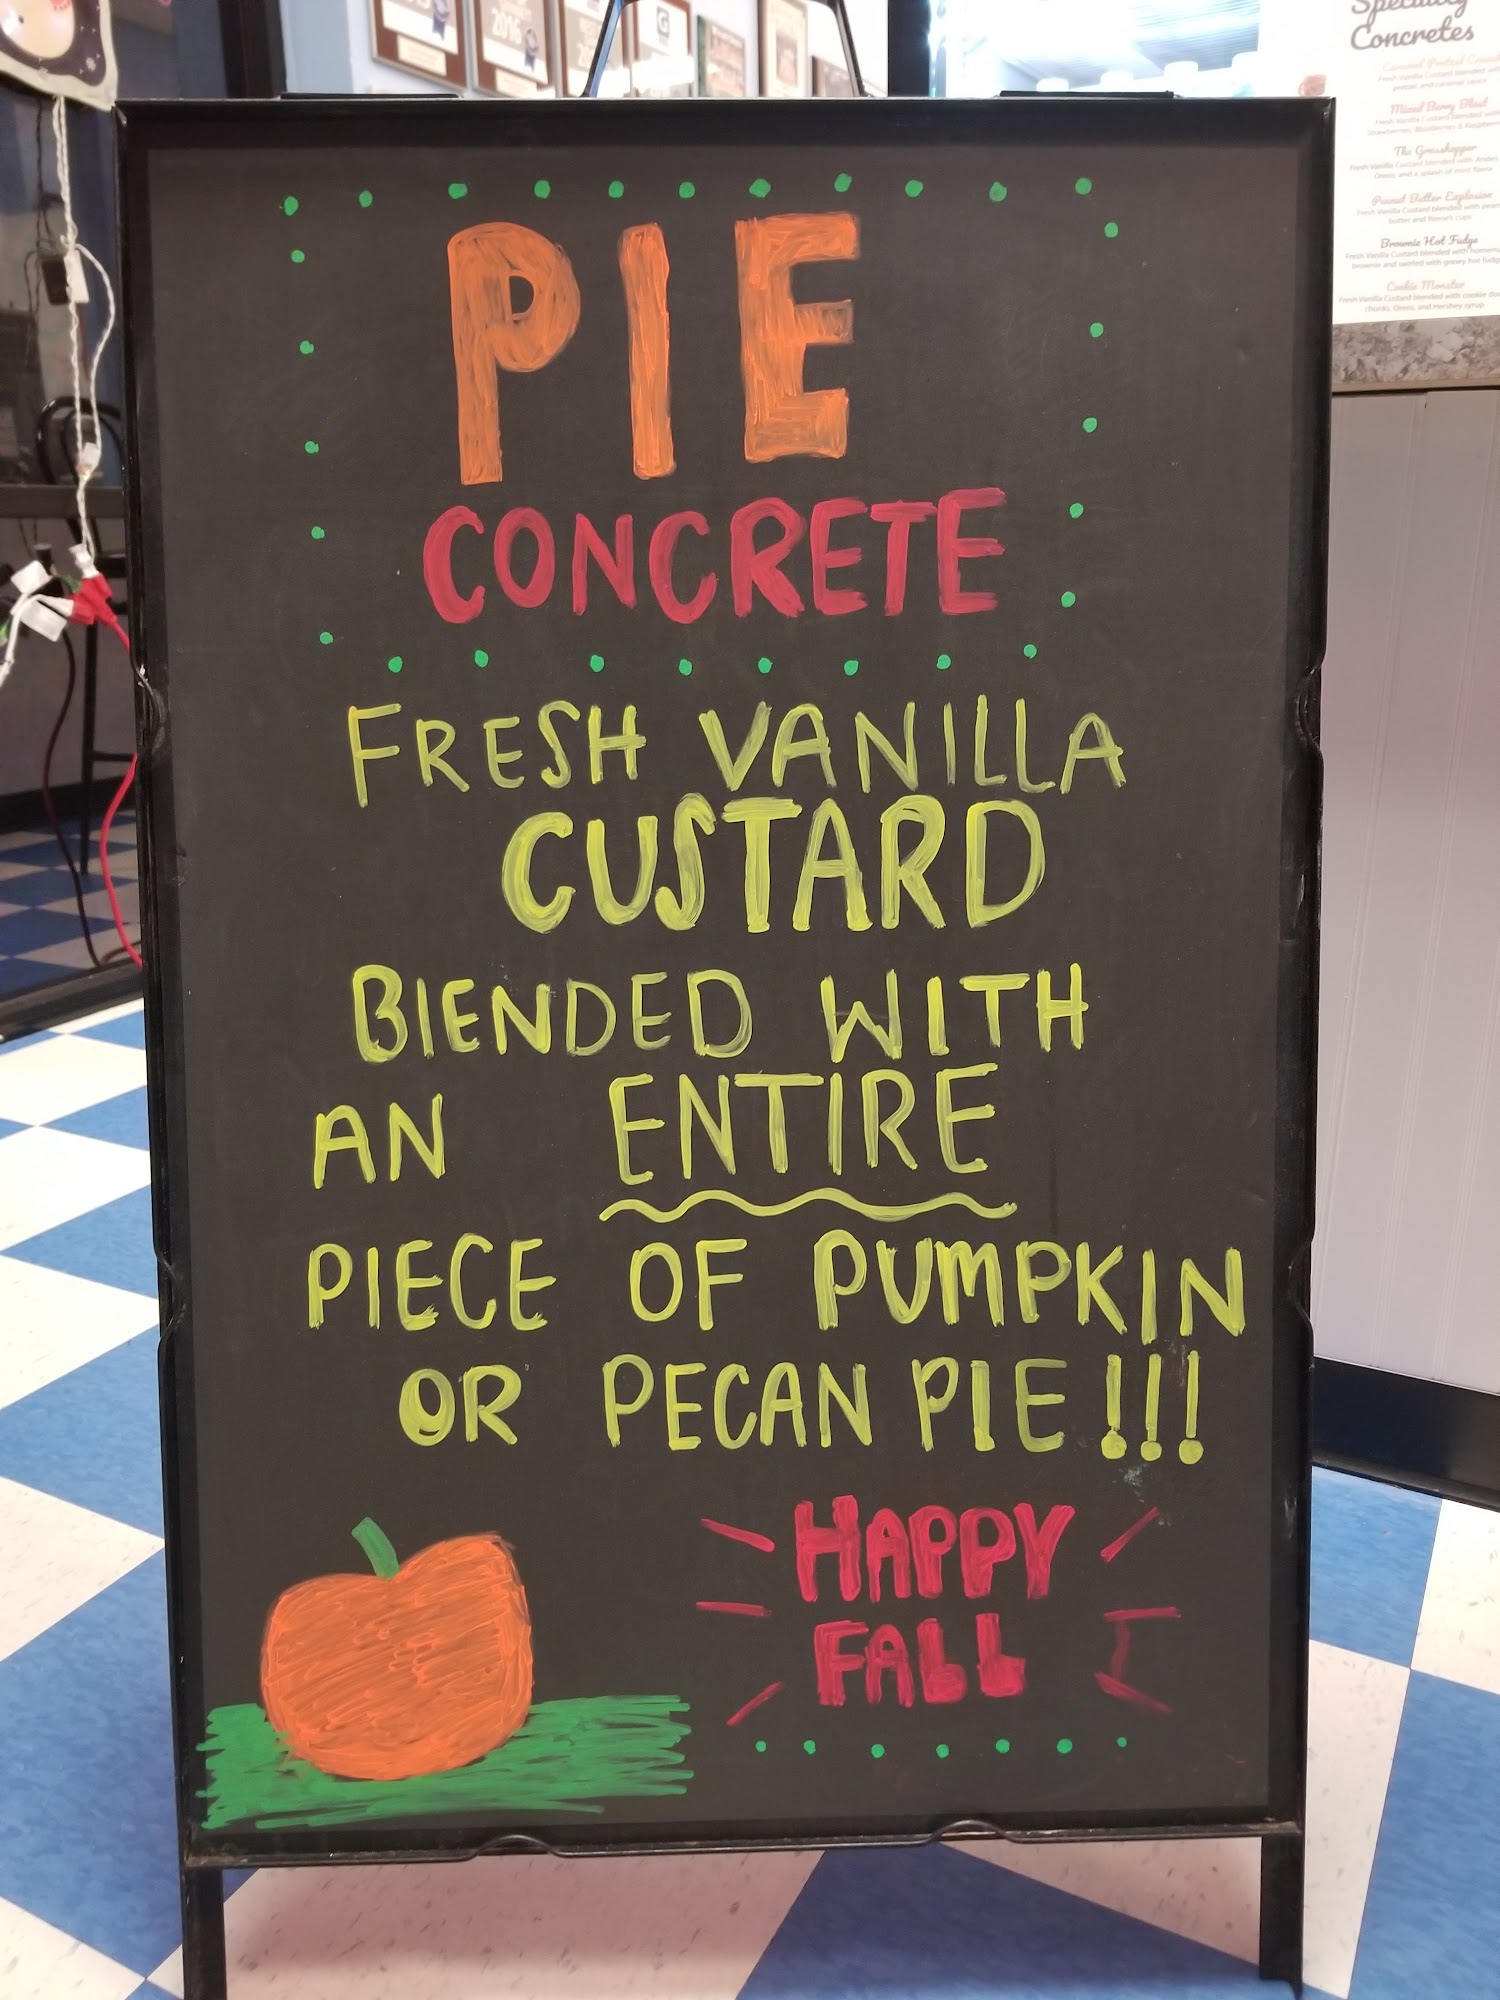 PIE
CONCRETE
FRESH VANILLA
CUSTARD
BLENDED WITH
AN ENTIRE
PIECE OF PUMPKIN
OR PECAN PIE!!!
HAPPY
FALL
2016
Specialty
Concretes
Mixed Berry Blast
Fresh Vanilla Custard blended with
Strawberries, Blueberries & Raspberri
The Grasshopper
Fresh Vanilla Custard blended with Andes,
Oreos, and a splash of mint flavor
Peanut Butter Explosion
Fresh Vanilla Custard blended with pean
butter and Reese's cups
Brownie Hot Fudge
Fresh Vanilla Custard blended with homem
brownie and swirled with gooey hot fudg
Cookie Monster
Fresh Vanilla Custard blended with cookie do
chunks, Oreos, and Hershey syrup